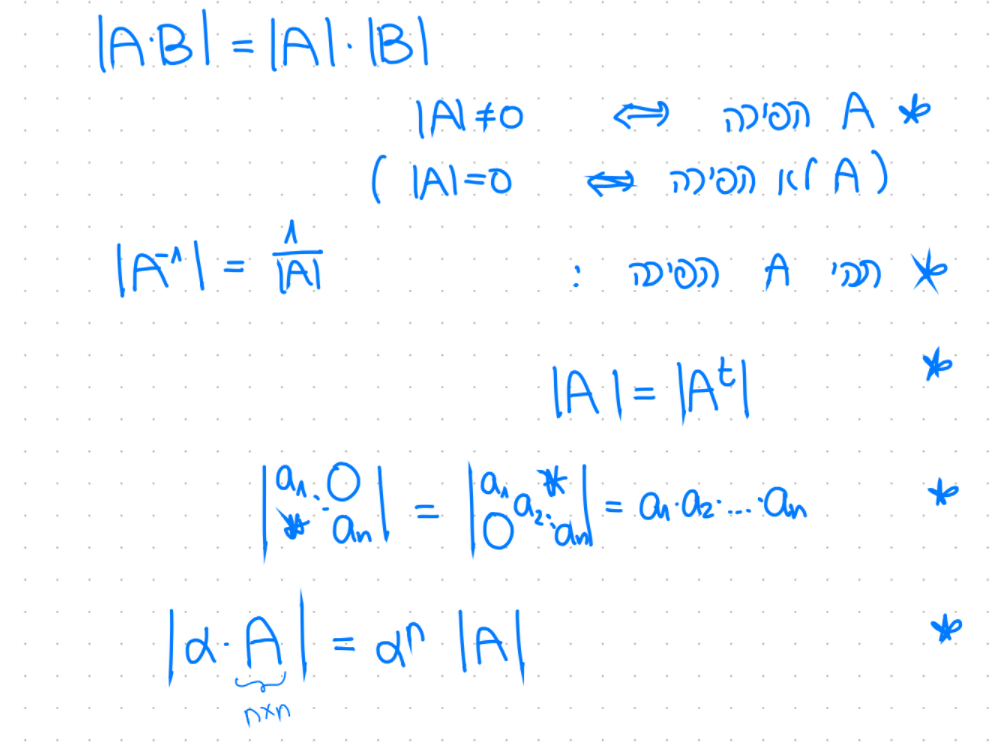 |A·B| = |A|·|B|
* A הפיכה ⟺ |A|≠0
(A לא הפיכה ⟺ |A|=0)
* תהי A הפיכה : |A⁻¹| = 1/|A|
* |A| = |Aᵗ|
* |a₁ ⋱ 0 * aₙ| = |a₁ * a₂ ⋱ 0 aₙ| = a₁·a₂·...·aₙ
* |α·A| = αⁿ |A|
n×n